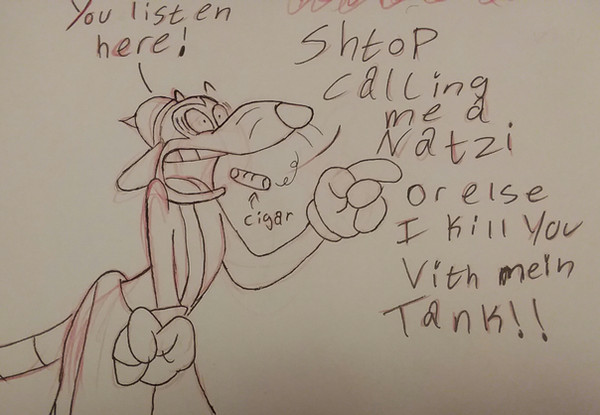 You listen
here!
Shtop
calling
me a
Natzi
or else
I kill You
Vith mein
Tank!!
cigar